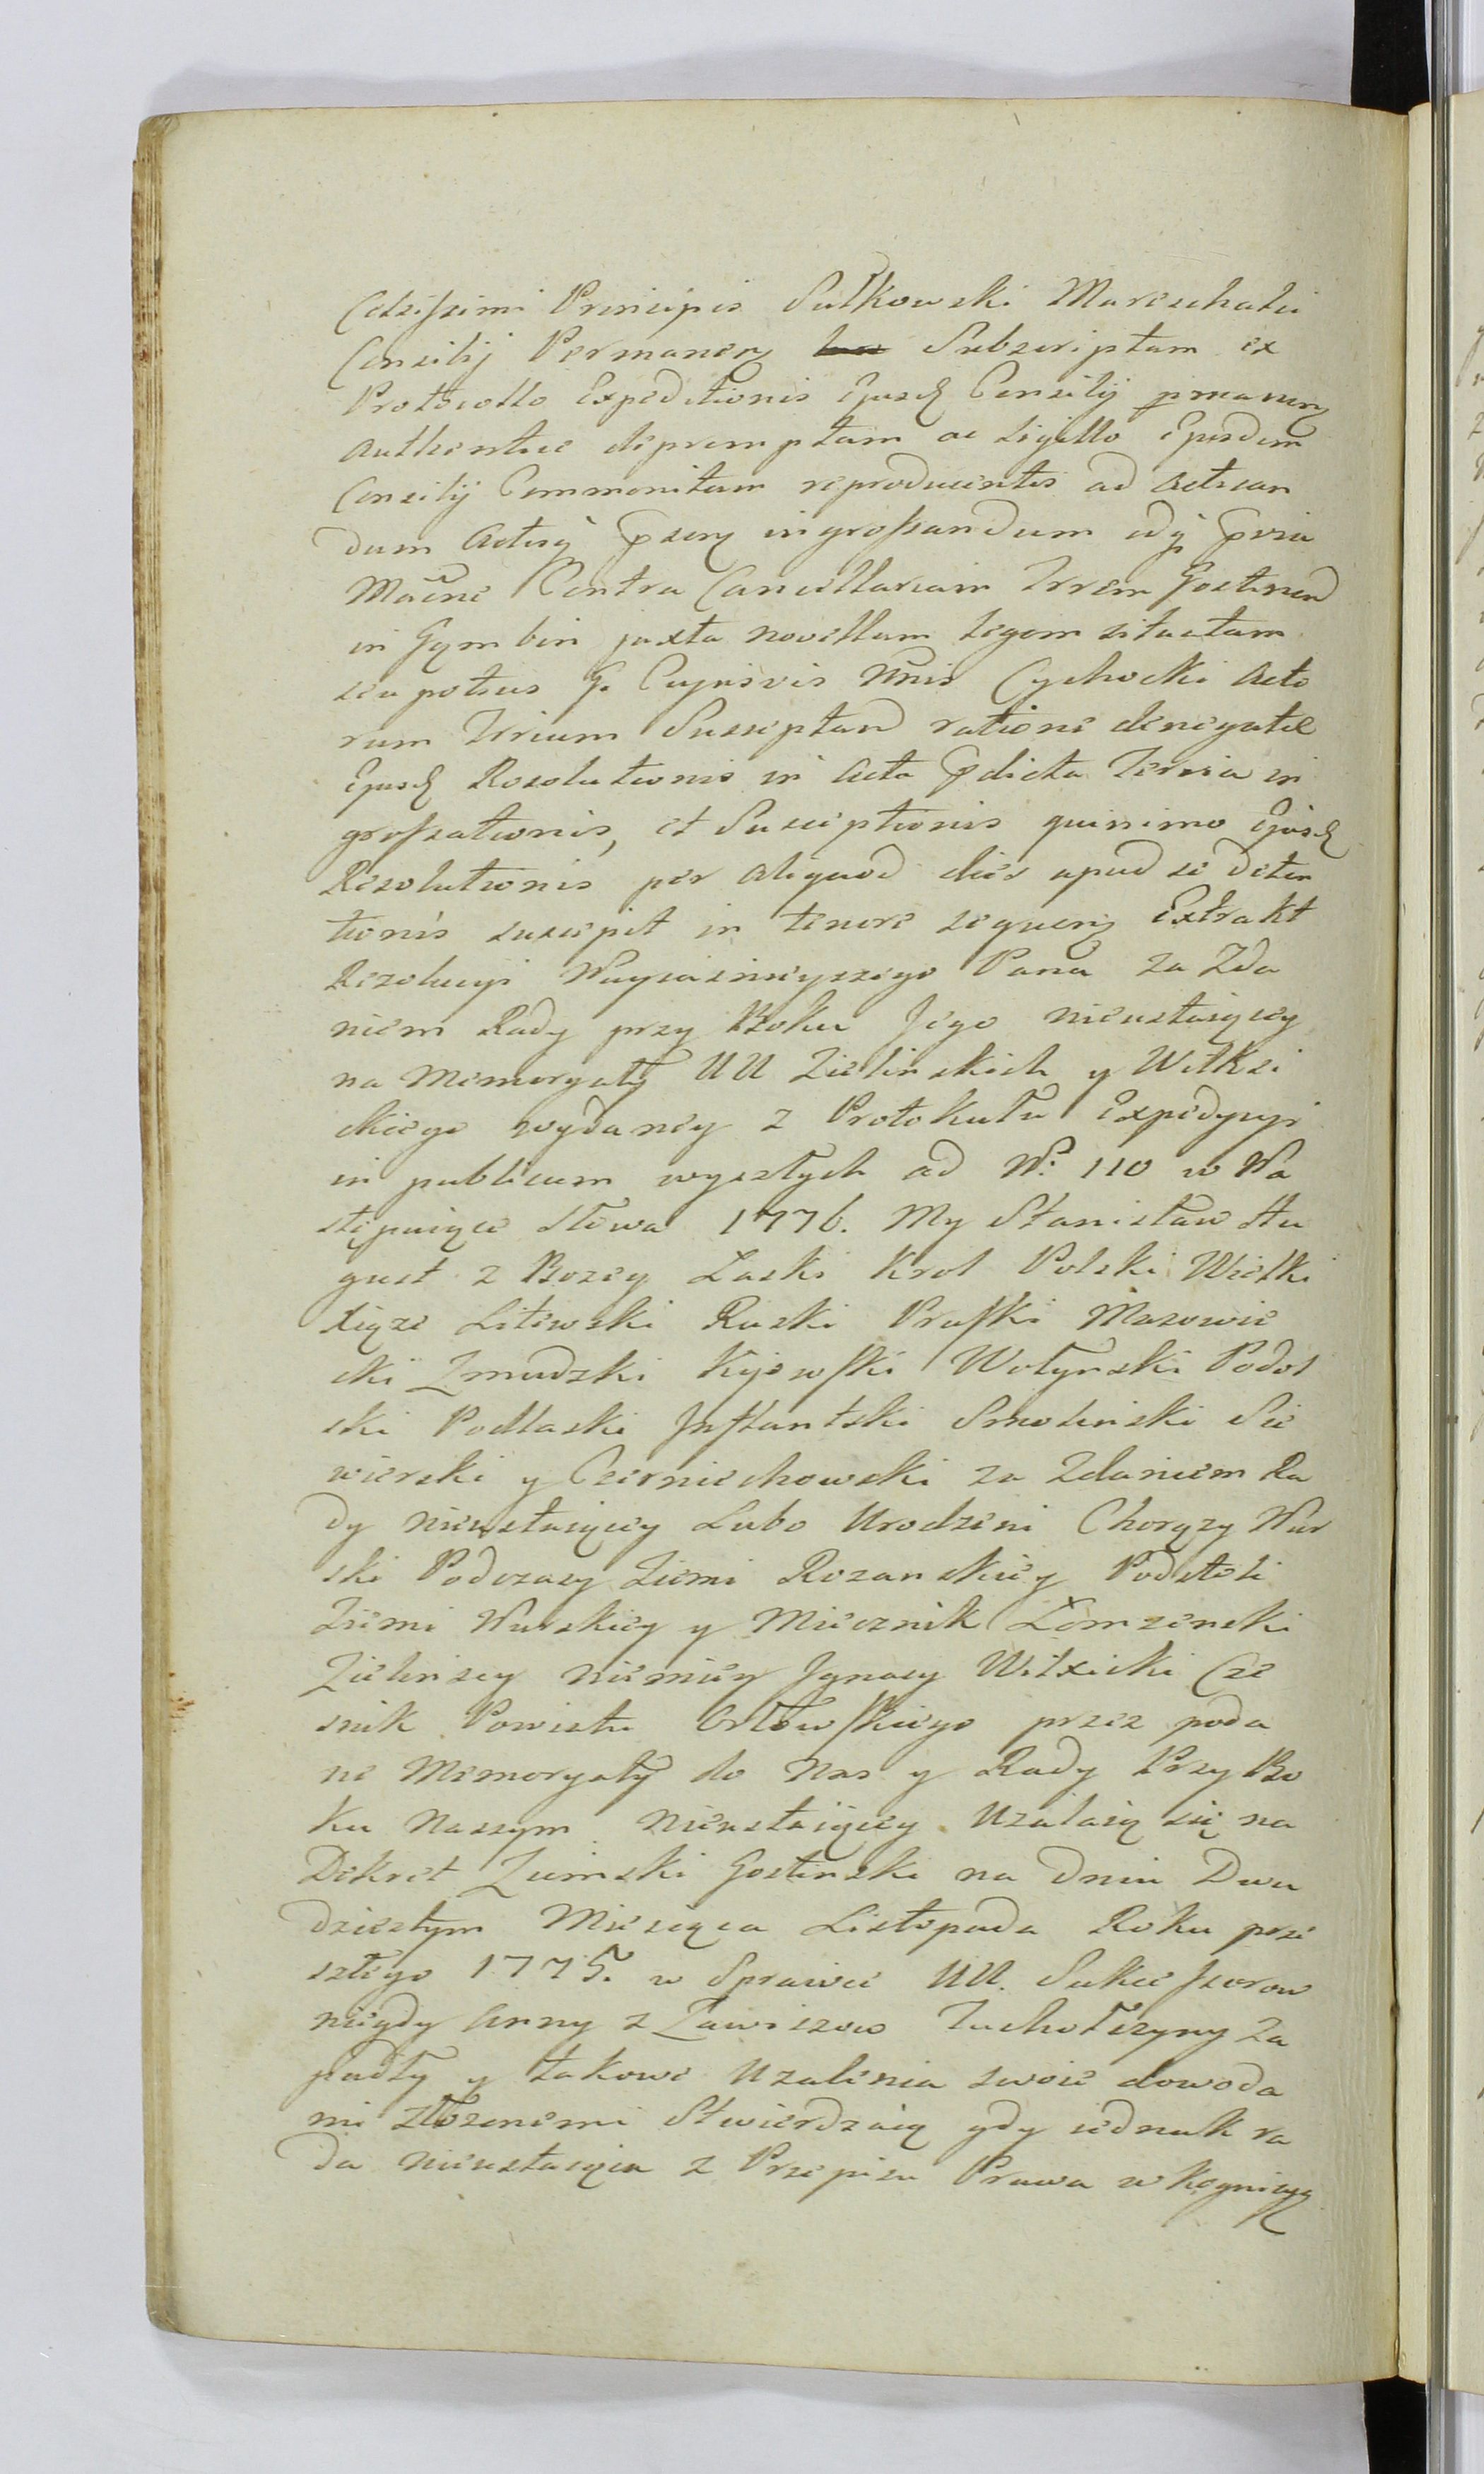 Celsissimi Principis Sułkowski Mareschalci
Consilij Permanen Subscriptam ex
Protocollo Expeditionis Ejusd Consilij pmanen
Authentice depromptam ac Sigillo Ejusdem
Consilij Communitam reproducentis ad Actican
dum Actisq ingrossandum
Contra Cancellariam Trrem Gostinen
in Gymbin juxta novellam Legem situatam
seu potius G. Cujusvis Cychocki Acto
rum Trrium Susceptan ratione denegatæ
Ejusd Resolutionis in Acta pdicta Terria in
grossationis, et Susceptionis quinimo Ejusd
Resolutionis per aliquod dies apud se deten
tionis suscepit in tenore sequen Extrakt
Rezolucyi Nayiasnieyszego Pana za Zda
niem Rady przy Boku Jego nieustaiącey
na Memoryały UU Zielinskich y Wilkxi
ckiego wydaney z Protokułu Expedycyi
in publicum wyszłych ad N: 110 w Na
stępuiące Słowa 1776. My Stanisław Au
gust z Bozey Łaski Krol Polski Wielki
Xiąze Litewski Ruski Pruski Mazowie
cki Zmudzki Kijowski Wołynski Podol
ski Podlaski Inflantski Smolinski Sie
wierski y Czerniechowski za Zdaniem Ra
dy nieustaiącey Lubo Urodzeni Chorązy Nur
ski Podczaszy Ziemi Rozanskiey Podstoli
Ziemi Nurskiey y Miecznik Łomzenski
Zielinscy niemniey Jgnacy Wilxicki Cze
snik Powiatu Orłowskiego przez poda
ne Memoryały do Nas y Rady Przy Bo
ku Naszym Nieustaiącey Uzalaią się na
Dekret Ziemski Gostinski na Dniu Dwu
dziestym Miesiąca Listopada Roku prze
szłego 1775. w Sprawie UU. Sukcessorow
niegdy Anny z Zawiszow Zuchotszyny za
padły y takowe Uzalenia swoie dowoda
mi złozonemi Stwierdzaią gdy iednak ra
da nieustaiąca z Przepisu Prawa w kognicyą